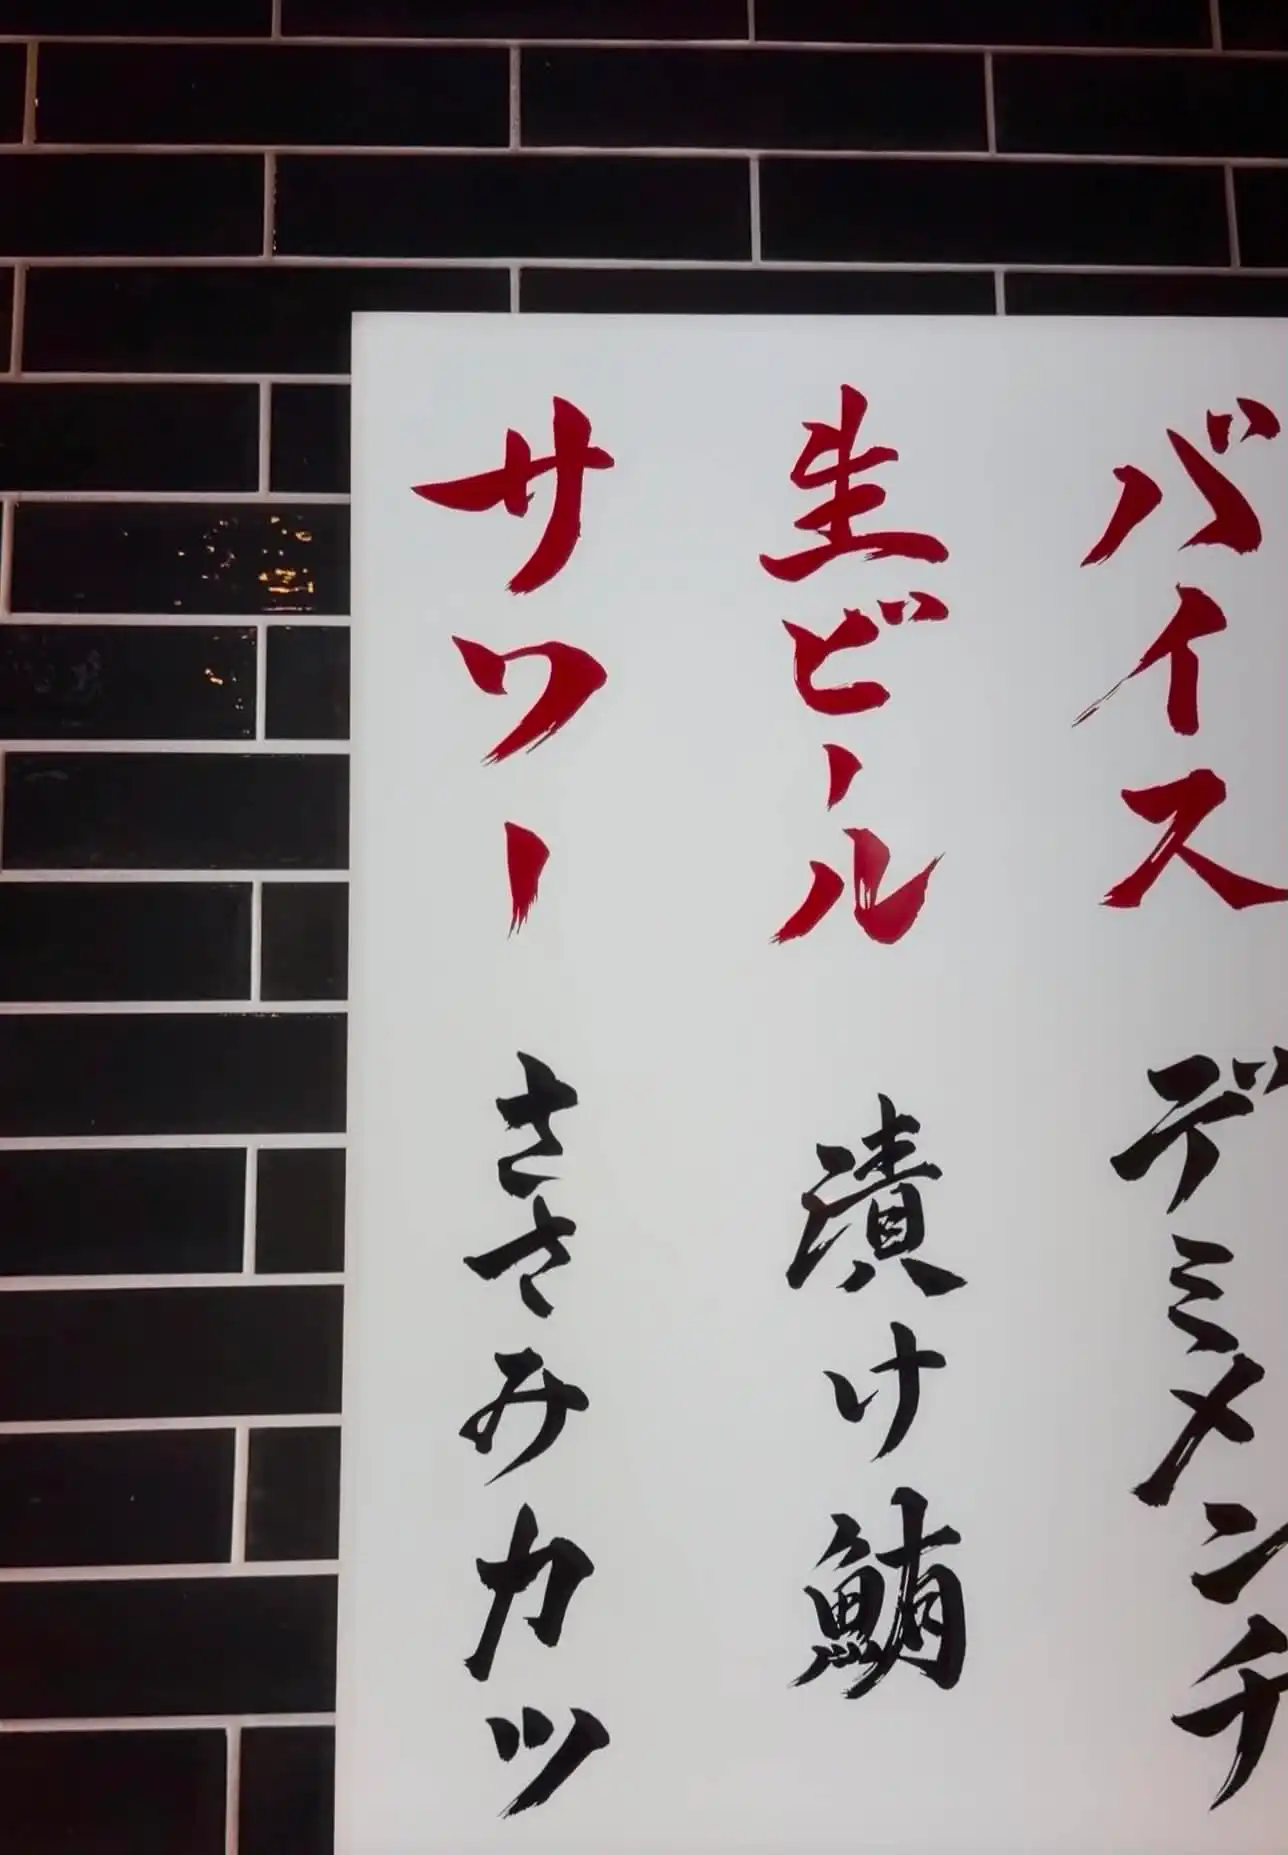 バイス
デミメンチ
生ビール
漬け鮪
サワー
ささみカツ